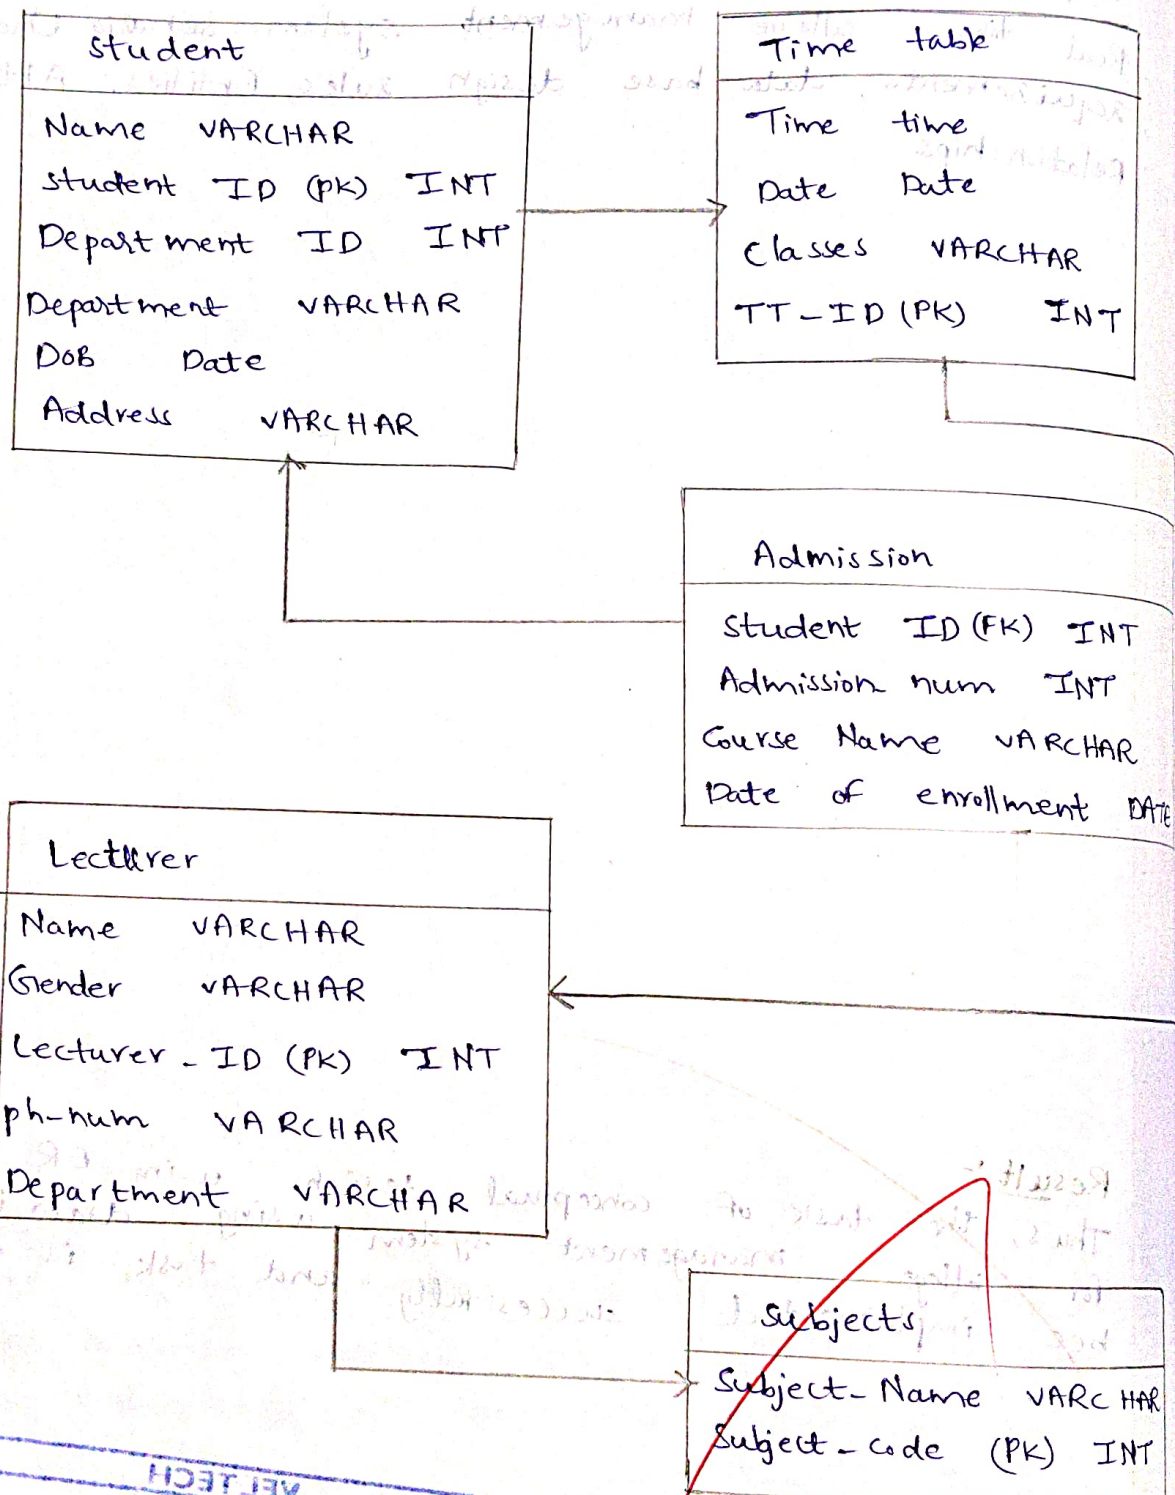 Student
Name VARCHAR
Student ID (PK) INT
Department ID INT
Department VARCHAR
DOB Date
Address VARCHAR
Time table
Time time
Date Date
Classes VARCHAR
TT-ID (PK) INT
Admission
Student ID (FK) INT
Admission num INT
Course Name VARCHAR
Date of enrollment DATE
Lecturer
Name VARCHAR
Gender VARCHAR
Lecturer-ID (PK) INT
ph-num VARCHAR
Department VARCHAR
Subjects
Subject-Name VARCHAR
Subject-code (PK) INT
VEL TECH